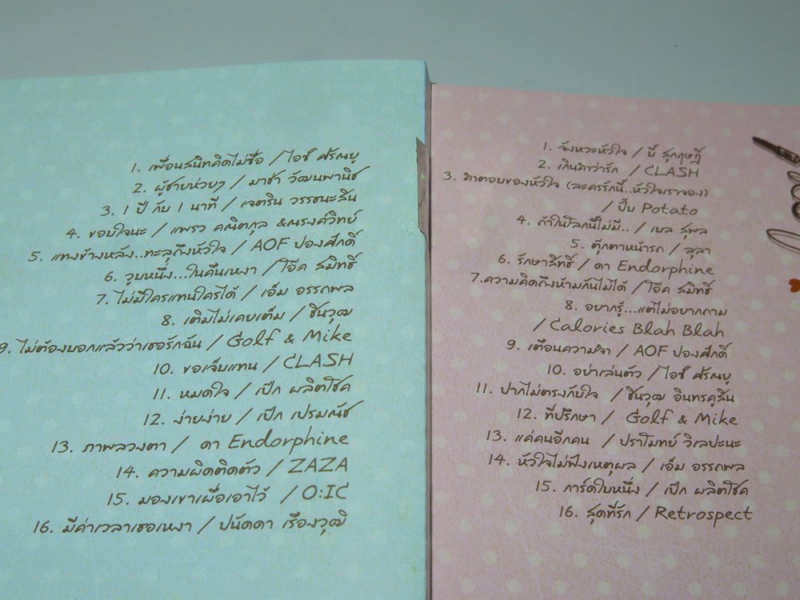 1. เพื่อนสนิทคิดไม่ซื่อ / ไอซ์ ศรัณยู
2. ผู้ชายห่วยๆ / มาช่า วัฒนพานิช
3. 1 ปี กับ 1 นาที / เจตริน วรรธนะสิน
4. ขอบใจนะ / แพรว คณิตกุล &ณรงค์วิทย์
5. แทงข้างหลัง..ทะลุถึงหัวใจ / AOF ปองศักดิ์
6. วูบหนึ่ง...ในคืนเหงา / โอ๊ค สมิทธิ์
7. ไม่มีใครแทนใครได้ / เอ็ม อรรถพล
8. เติมไม่เคยเต็ม / ชินวุฒ
9. ไม่ต้องบอกแล้วว่าเธอรักฉัน / Golf & Mike
10. ขอเจ็บแทน / CLASH
11. หมดใจ / เป๊ก ผลิตโชค
12. ง่ายง่าย / เป๊ก เปรมณัช
13. ภาพลวงตา / ดา Endorphine
14. ความผิดติดตัว / ZAZA
15. มองเขาเผื่อเอาไว้ / O:IC
16. มีค่าเวลาเธอเหงา / ปนัดดา เรืองวุฒิ
1. จังหวะหัวใจ / บี้ สุกฤษฎิ์
2. เกินคำว่ารัก / CLASH
3. คำตอบของหัวใจ (ละครรักนี้..หัวใจเราจอง)
/ ปั๊บ Potato
4. ถ้าในโลกนี้ไม่มี.. / เบล สุพล
5. ตุ๊กตาหน้ารถ / ลุลา
6. รักษาสิทธิ์ / ดา Endorphine
7.ความคิดถึงห้ามกันไม่ได้ / โอ๊ค สมิทธิ์
8. อยากรู้...แต่ไม่อยากถาม
/ Calories Blah Blah
9. เตือนความจำ / AOF ปองศักดิ์
10. อย่าเล่นตัว / ไอซ์ ศรัณยู
11. ปากไม่ตรงกับใจ / ชินวุฒ อินทรคุสิน
12. ที่ปรึกษา / Golf & Mike
13. แค่คนอีกคน / ปราโมทย์ วิเลปะนะ
14. หัวใจไม่ฟังเหตุผล / เอ็ม อรรถพล
15. การ์ดใบหนึ่ง / เป๊ก ผลิตโชค
16. สุดที่รัก / Retrospect